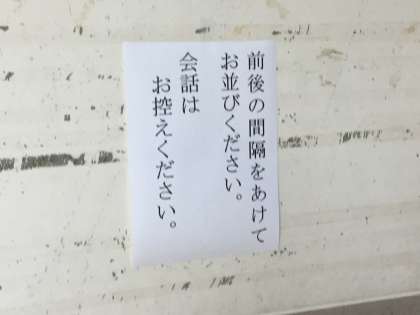 前後の間隔をあけて
お並びください。
会話は
お控えください。